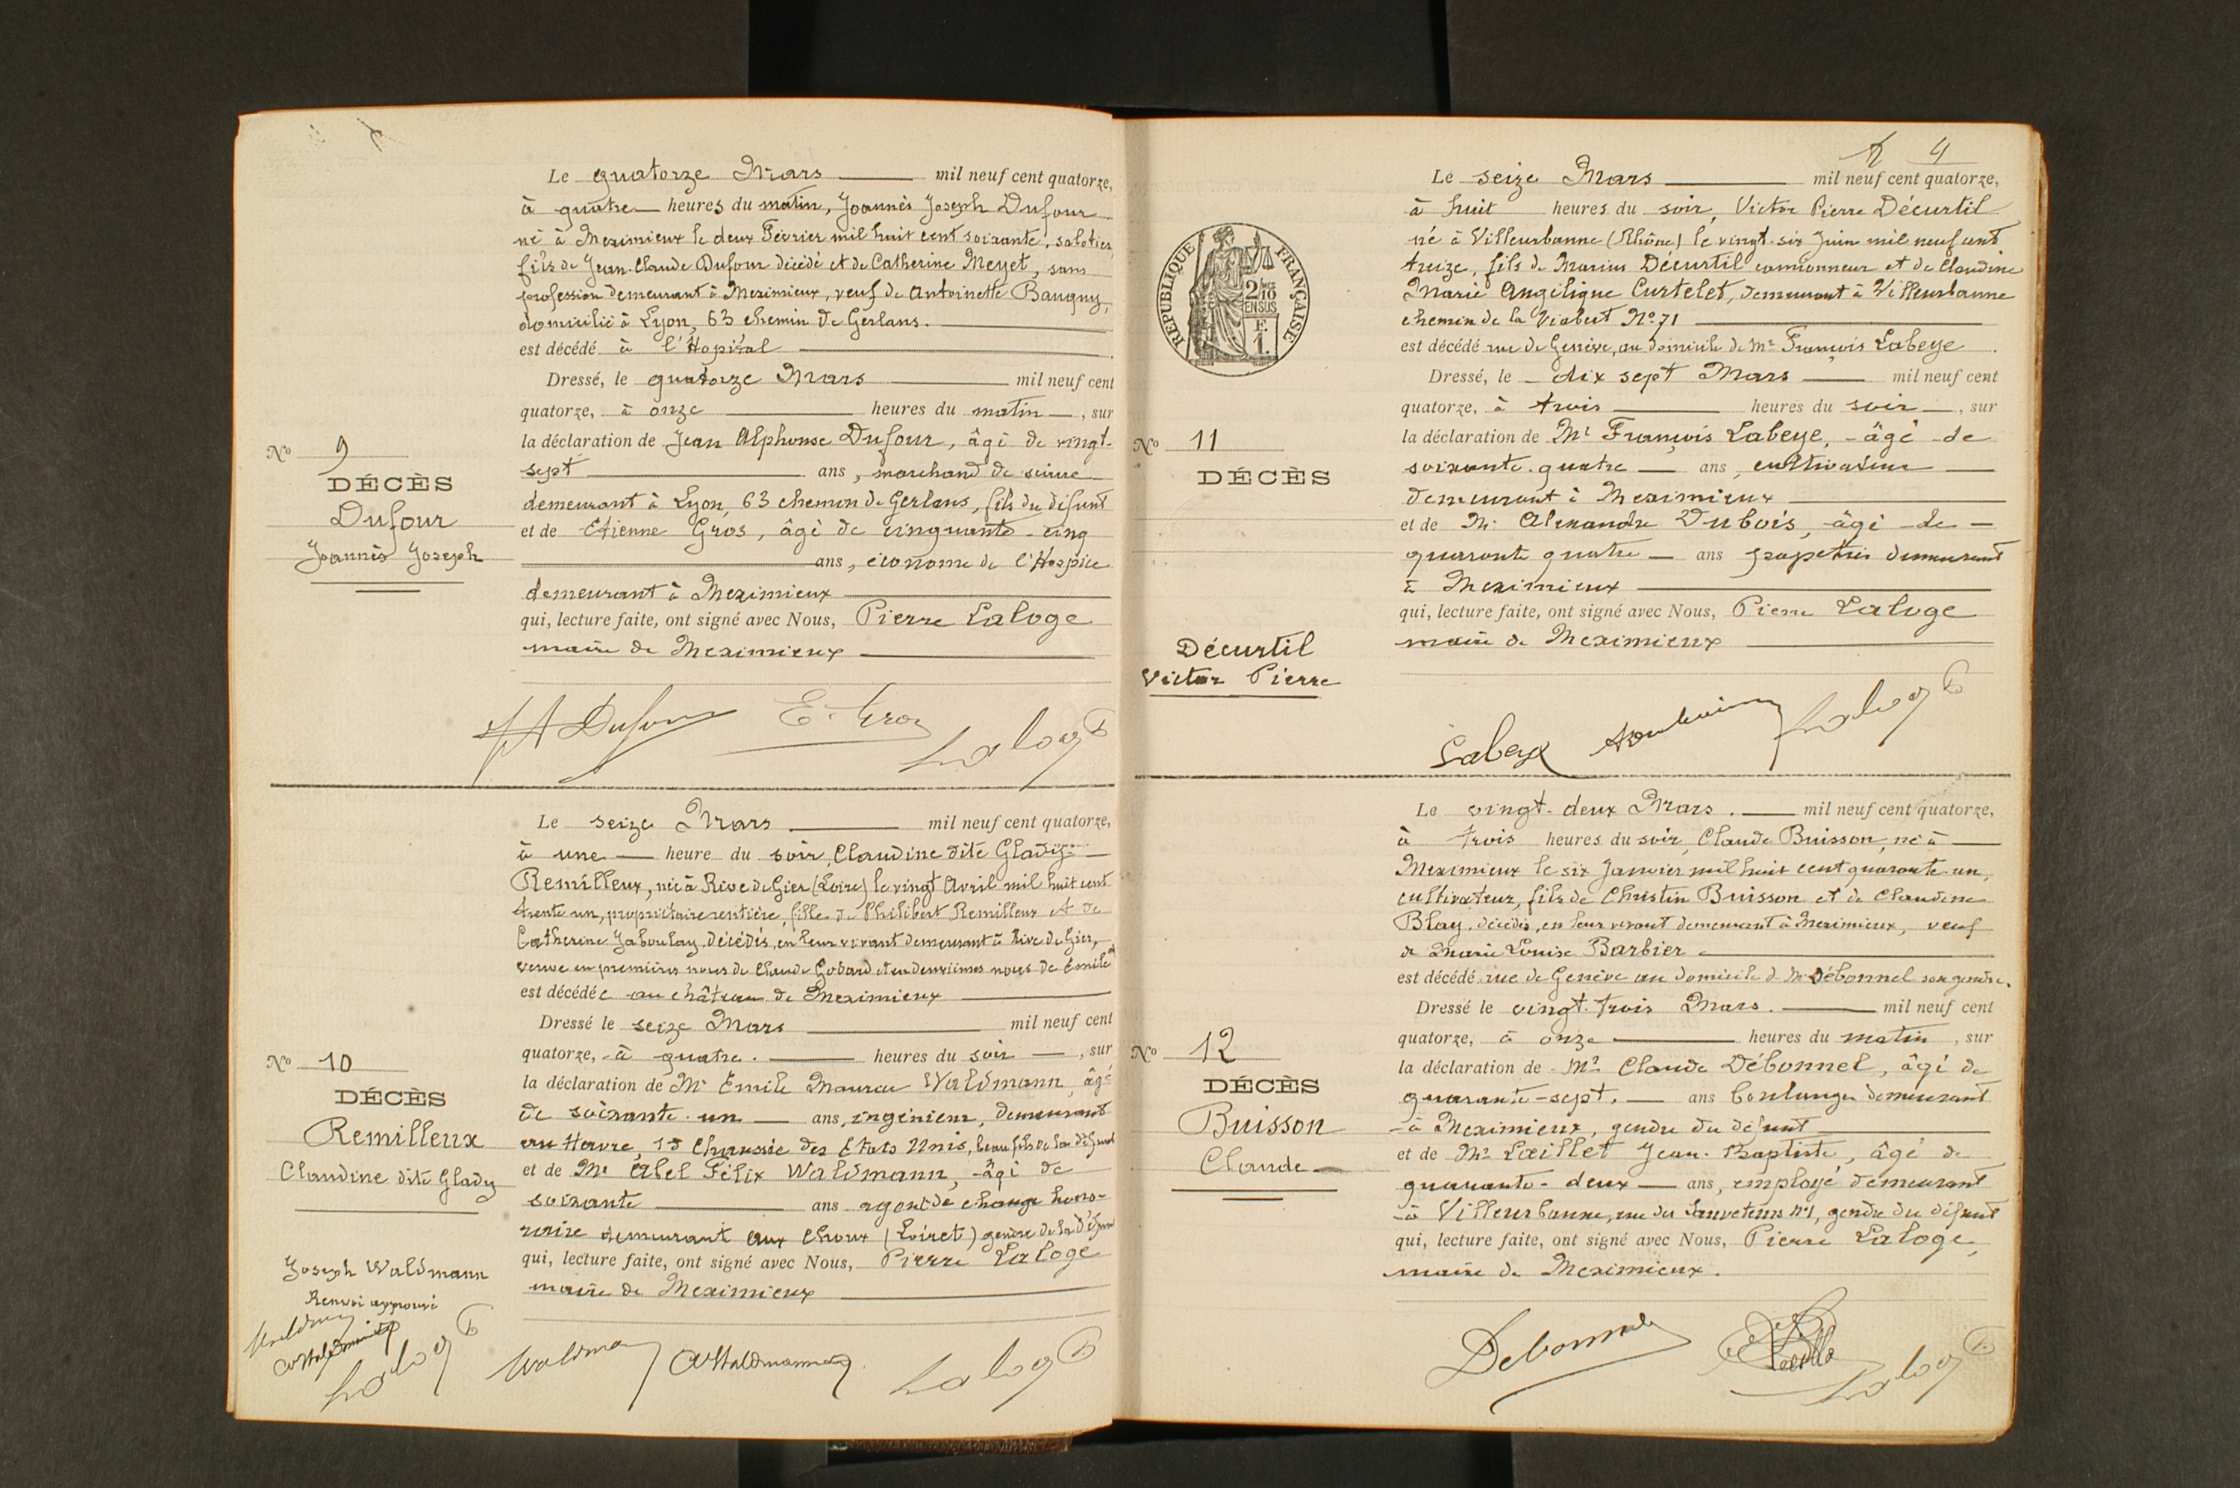 Le quatorze Mars mil neuf cent quatorze,
à quatre heures du matin, Joannès Joseph Dufour
né à Meximieux le deux Février mil huit cent soixante, sabotier,
fils de Jean-Claude Dufour décédé et de Catherine Meyet, sans
profession demeurant à Meximieux, veuf de Antoinette Baugny,
domicilié à Lyon, 63 chemin de Gerlans.
est décédé à l'Hopital
Dressé, le quatorze Mars mil neuf cent
quatorze, à onze heures du matin, sur
la déclaration de Jean Alphonse Dufour, âgé de vingt-
sept ans, marchand de
demeurant à Lyon, 63 chemin de Gerlans, fils du défunt
et de Etienne Gros, âgé de cinquante-cinq
ans, économe de l'Hospice
demeurant à Meximieux
qui, lecture faite, ont signé avec Nous, Pierre Laloge
maire de Meximieux
No 9
DÉCÈS
Dufour
Joannès Joseph
Dufour E. Gros Laloge
Le seize Mars mil neuf cent quatorze,
à une heure du soir, Claudine dite Glady
Remilleux, née à Rive de Gier (Loire) le vingt Avril mil huit cent
trente un, propriétaire rentière, fille de Philibert Remilleux et de
Catherine Jaboulay, décédés, en leur vivant demeurant à Rive de Gier,
veuve en premières noces de Claude Gobard et en deuxièmes noces de Emile
est décédée au château de Meximieux
Dressé le seize Mars mil neuf cent
quatorze, à quatre. heures du soir, sur
la déclaration de Mr Emile Waldmann, âgé
de soixante-un ans, ingénieur, demeurant
au Havre, Chaussée des Etats Unis, beau fils de la défunte
et de Mr Abel Félix Waldmann, âgé de
soixante ans agent de change hono-
raire demeurant aux Choux (Loiret) gendre de la défunte
qui, lecture faite, ont signé avec Nous, Pierre Laloge
maire de Meximieux
No 10
DÉCÈS
Remilleux
Claudine dite Glady
Joseph Waldmann
Renvoi approuvé
Waldmann
Waldmann
Laloge
Waldmann Waldmann Laloge
4
Le seize Mars mil neuf cent quatorze,
à huit heures du soir, Victor Pierre Décurtil
né à Villeurbanne (Rhône) le vingt-six Juin mil neuf cent
treize, fils de Marius Décurtil camionneur et de Claudine
Marie Angélique Curtelet, demeurant à Villeurbanne
chemin de la Viabert No 71
est décédé rue de Genève, au domicile de Mr François Labeye
Dressé, le dix sept Mars mil neuf cent
quatorze, à trois heures du soir, sur
la déclaration de Mr François Labeye, âgé de
soixante-quatre ans, cultivateur
demeurant à Meximieux
et de Mr Alexandre Dubois, âgé de
quarante quatre ans papetier demeurant
à Meximieux
qui, lecture faite, ont signé avec Nous, Pierre Laloge
maire de Meximieux
RÉPUBLIQUE FRANÇAISE
2/10 EN SUS
F. 1.
No 11
DÉCÈS
Décurtil
Victor Pierre
Labeye Laloge
Le vingt-deux Mars. mil neuf cent quatorze,
à trois heures du soir, Claude Buisson, né à
Meximieux le six Janvier mil huit cent quarante-un,
cultivateur, fils de Christin Buisson et de Claudine
Blay, décédés, en leur vivant demeurant à Meximieux, veuf
de Marie Louise Barbier
est décédé rue de Genève au domicile de Mr Débonnel son gendre.
Dressé le vingt-trois Mars. mil neuf cent
quatorze, à onze heures du matin, sur
la déclaration de Mr Claude Débonnel, âgé de
quarante-sept. ans boulanger demeurant
à Meximieux, gendre du défunt
et de Mr Lœillet Jean-Baptiste, âgé de
quarante-deux ans, employé demeurant
à Villeurbanne, rue des Sauveteurs No 1, gendre du défunt
qui, lecture faite, ont signé avec Nous, Pierre Laloge,
maire de Meximieux.
No 12
DÉCÈS
Buisson
Claude
Debonnel Laloge